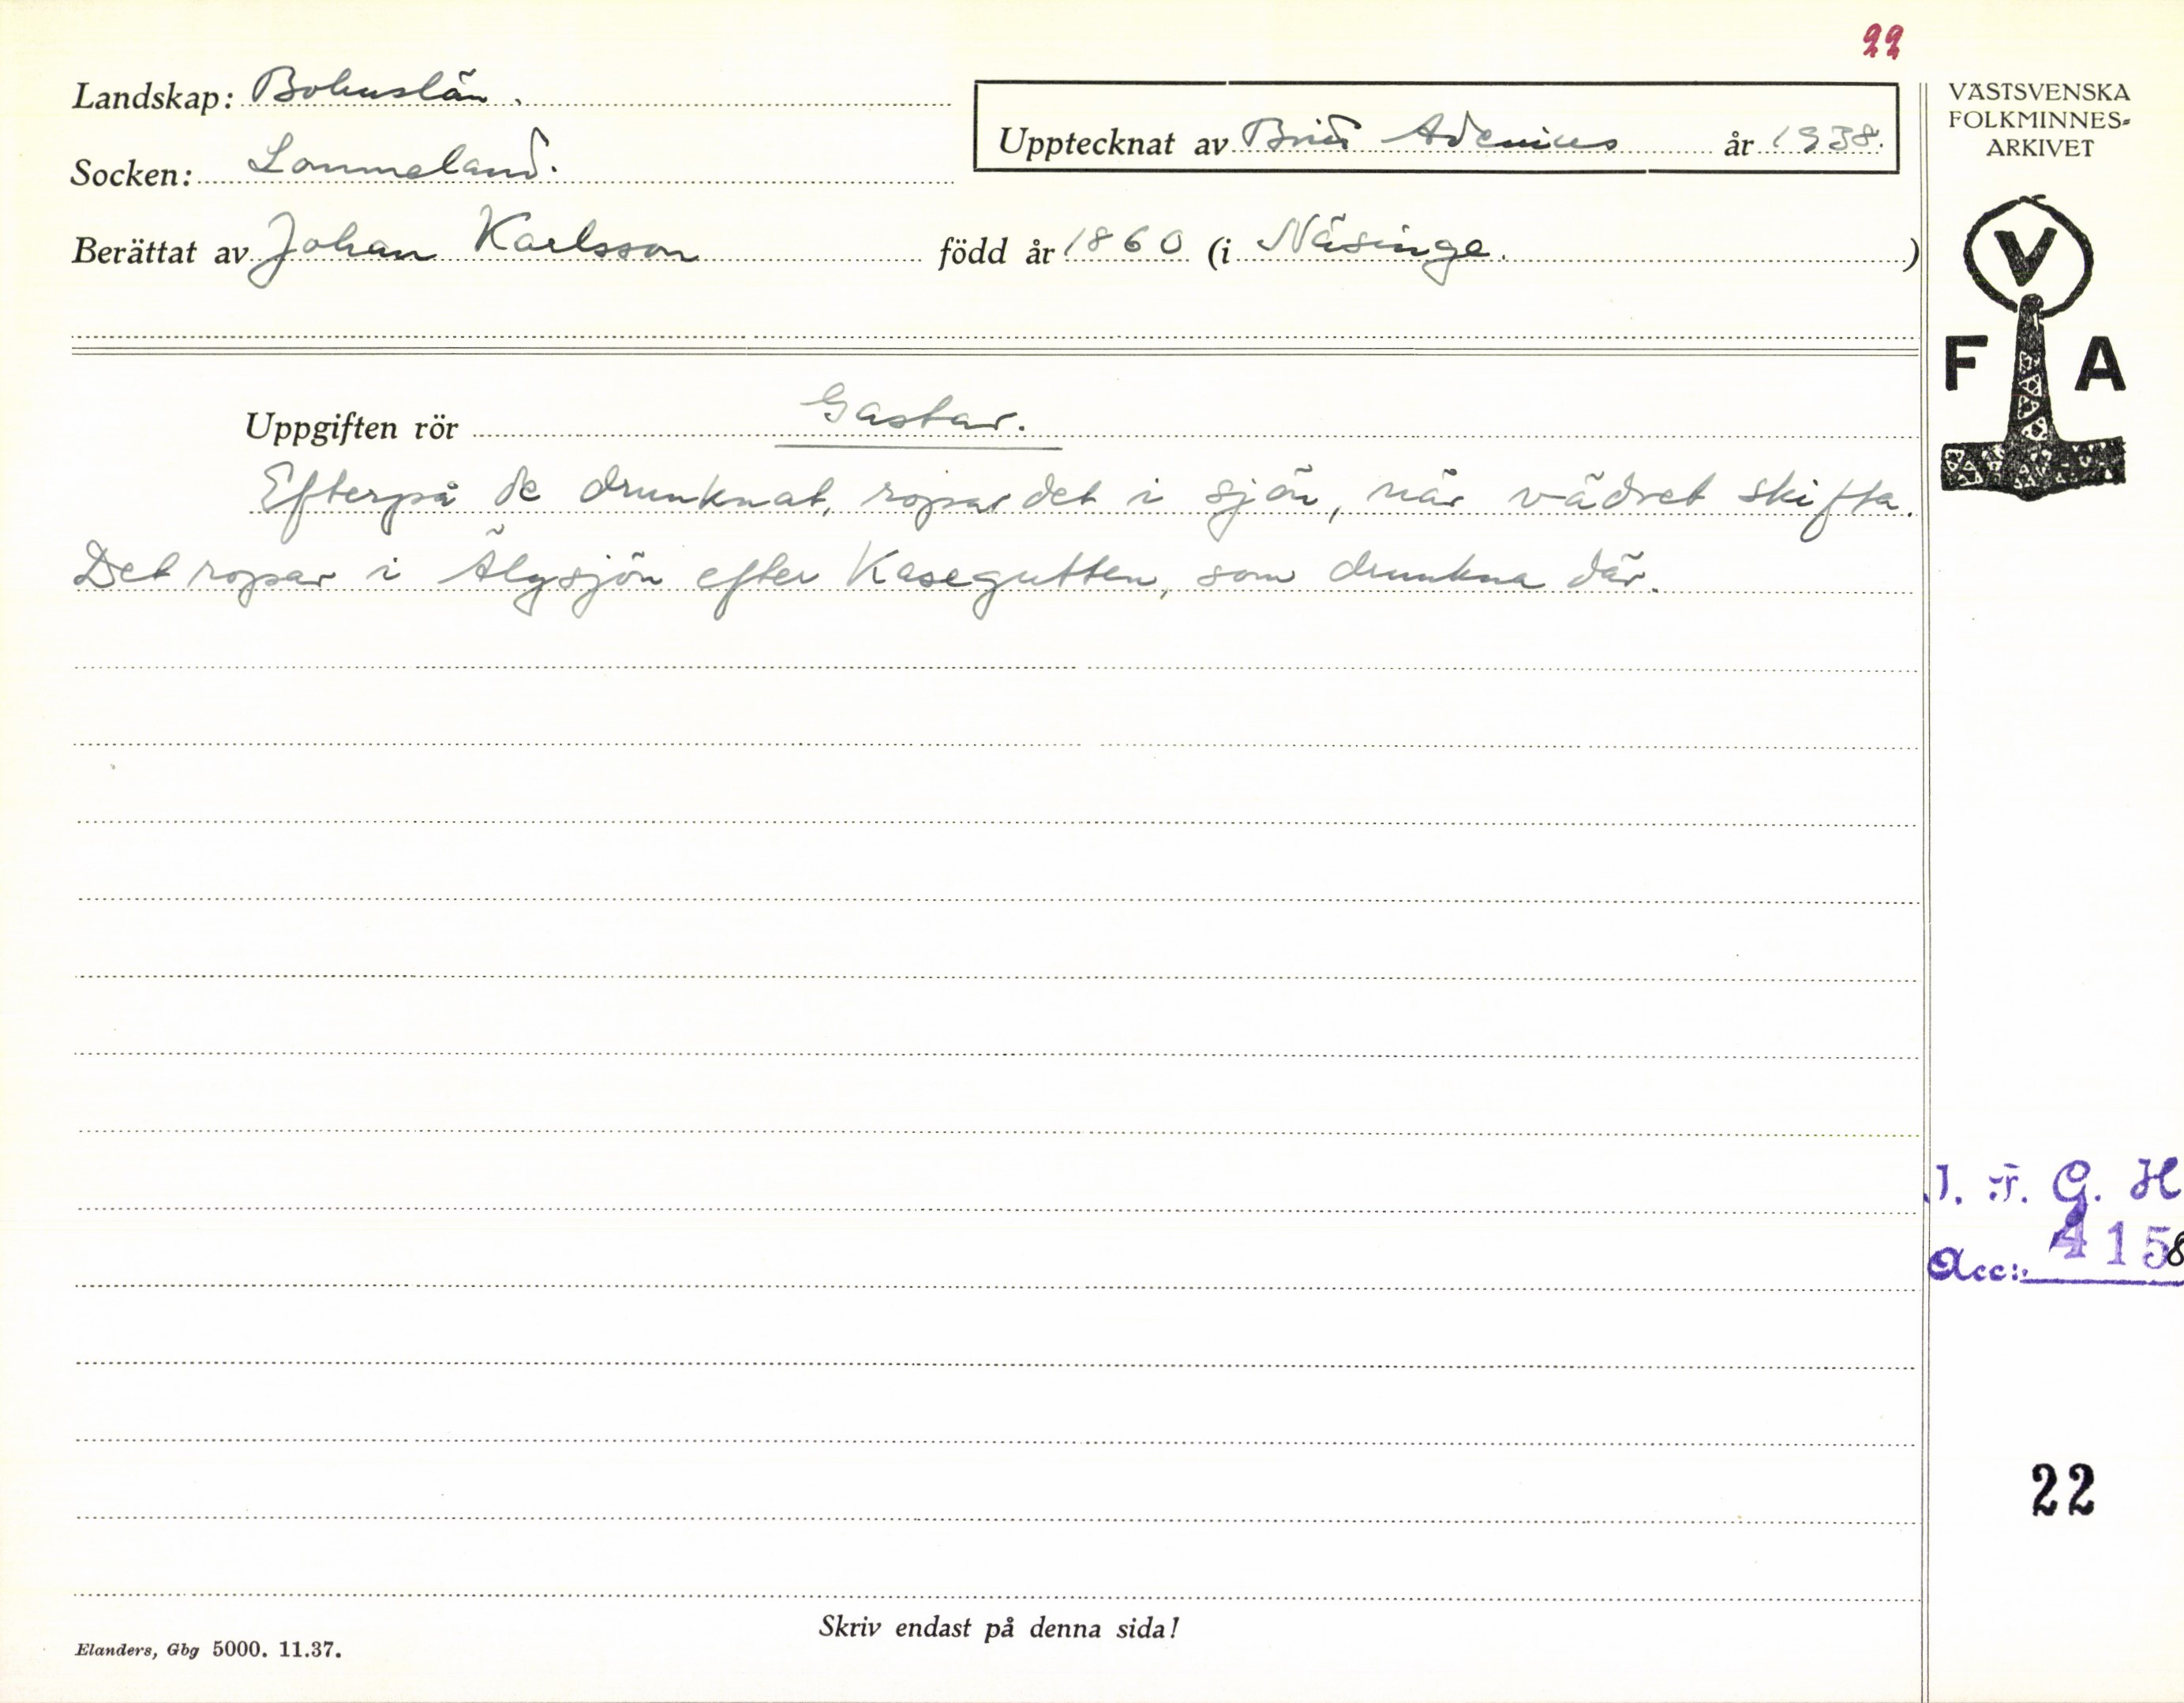 22
Landskap: Bohuslän.
Socken: Lommeland.
Upptecknat av Brita Adenius år 1938.
Berättat av Johan Karlsson född år 1860 (i Näsinge.)
VÄSTSVENSKA
FOLKMINNES-
ARKIVET
V
F A
Uppgiften rör Gastar.
Efterpå de drunknat, ropar det i sjön, när vädret skifta.
Det ropar i Älgsjön efter Kasegutten, som drunkna där.
I. F. G. H
Acc: 4158
22
Skriv endast på denna sida!
Elanders, Gbg 5000. 11.37.